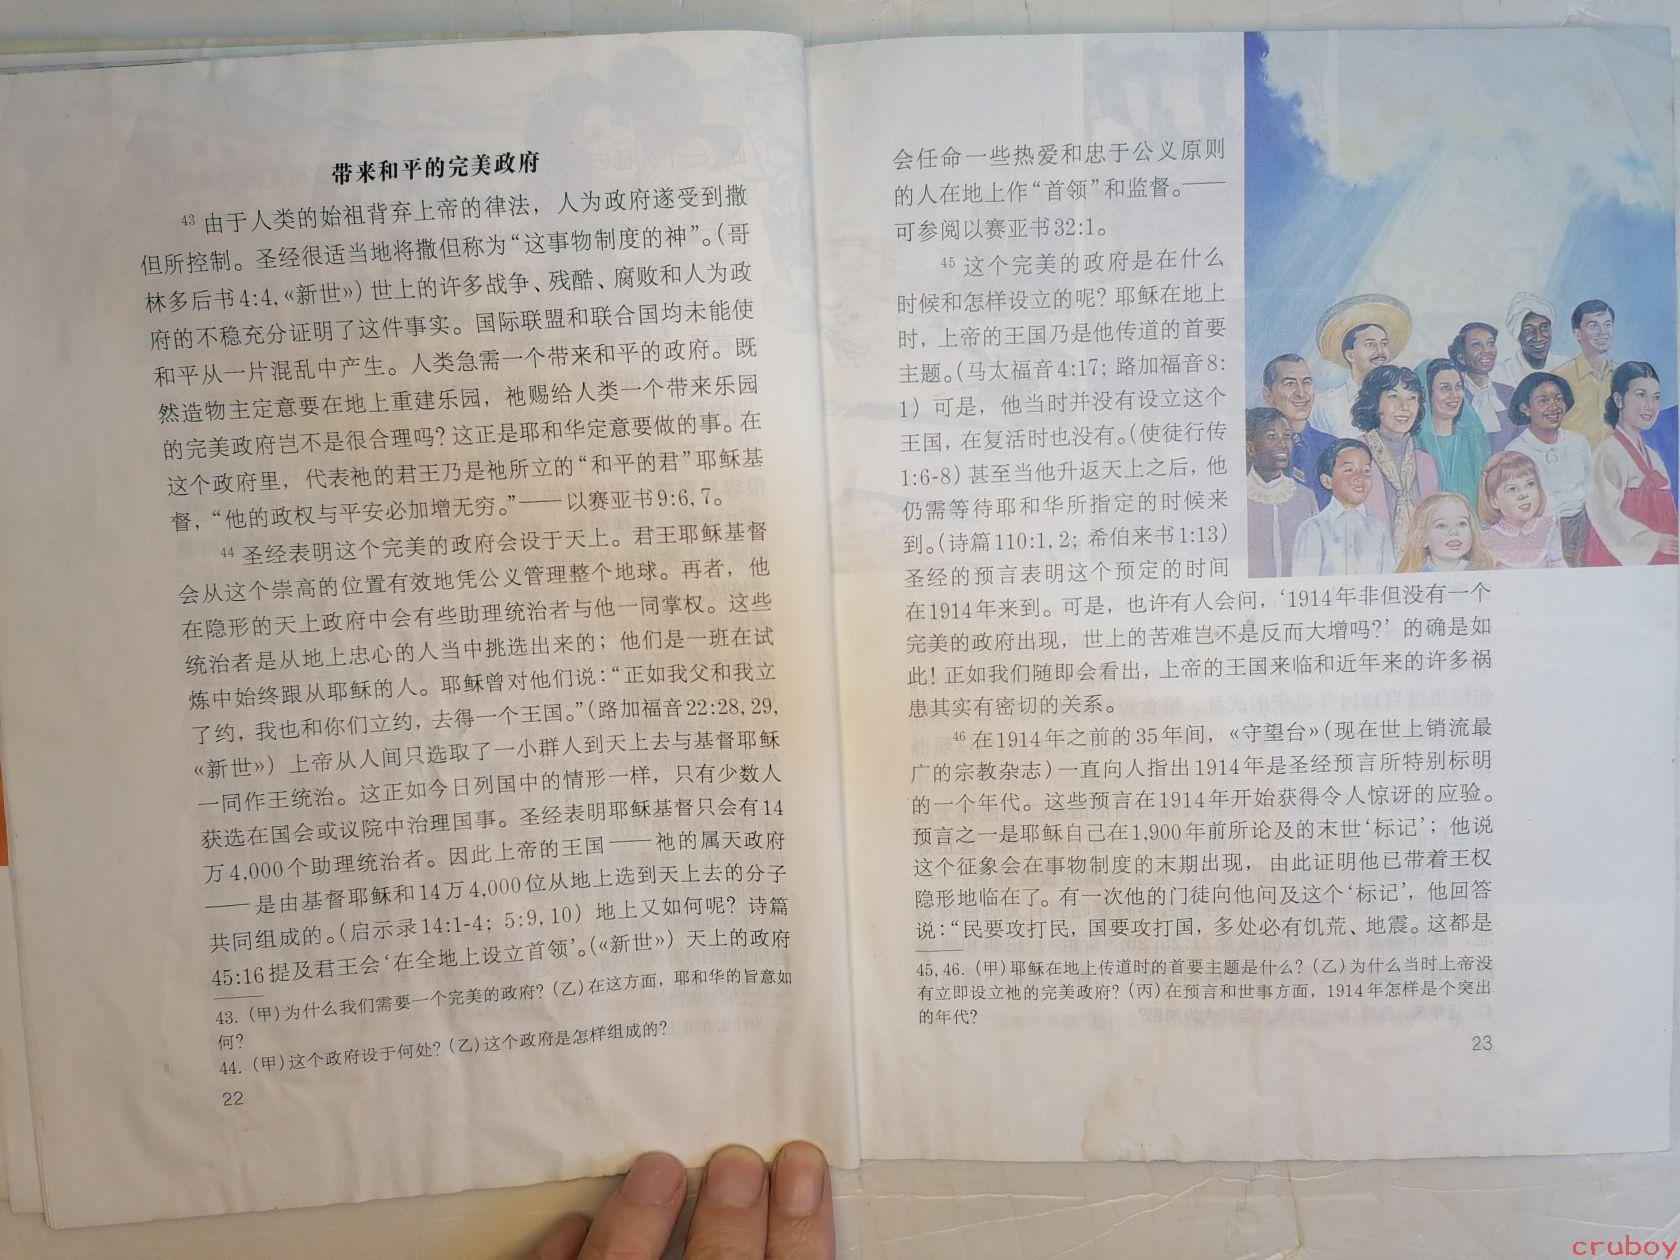 带来和平的完美政府
43 由于人类的始祖背弃上帝的律法，人为政府遂受到撒
但所控制。圣经很适当地将撒但称为“这事物制度的神”。(哥
林多后书4:4,《新世》) 世上的许多战争、残酷、腐败和人为政
府的不稳充分证明了这件事实。国际联盟和联合国均未能使
和平从一片混乱中产生。人类急需一个带来和平的政府。既
然造物主定意要在地上重建乐园，祂赐给人类一个带来乐园
的完美政府岂不是很合理吗？这正是耶和华定意要做的事。在
这个政府里，代表祂的君王乃是祂所立的“和平的君”耶稣基
督，“他的政权与平安必加增无穷。”——以赛亚书9:6,7。
44 圣经表明这个完美的政府会设于天上。君王耶稣基督
会从这个崇高的位置有效地凭公义管理整个地球。再者，他
在隐形的天上政府中会有些助理统治者与他一同掌权。这些
统治者是从地上忠心的人当中挑选出来的；他们是一班在试
炼中始终跟从耶稣的人。耶稣曾对他们说：“正如我父和我立
了约，我也和你们立约，去得一个王国。”(路加福音22:28,29,
《新世》) 上帝从人间只选取了一小群人到天上去与基督耶稣
一同作王统治。这正如今日列国中的情形一样，只有少数人
获选在国会或议院中治理国事。圣经表明耶稣基督只会有14
万4,000个助理统治者。因此上帝的王国——祂的属天政府
——是由基督耶稣和14万4,000位从地上选到天上去的分子
共同组成的。(启示录14:1-4; 5:9,10) 地上又如何呢？诗篇
45:16提及君王会‘在全地上设立首领’。(《新世》) 天上的政府
43. (甲)为什么我们需要一个完美的政府？(乙)在这方面，耶和华的旨意如
何？
44. (甲)这个政府设于何处？(乙)这个政府是怎样组成的？
22
会任命一些热爱和忠于公义原则
的人在地上作“首领”和监督。——
可参阅以赛亚书32:1。
45 这个完美的政府是在什么
时候和怎样设立的呢？耶稣在地上
时，上帝的王国乃是他传道的首要
主题。(马太福音4:17; 路加福音8:
1) 可是，他当时并没有设立这个
王国，在复活时也没有。(使徒行传
1:6-8) 甚至当他升返天上之后，他
仍需等待耶和华所指定的时候来
到。(诗篇110:1,2; 希伯来书1:13)
圣经的预言表明这个预定的时间
在1914年来到。可是，也许有人会问，‘1914年非但没有一个
完美的政府出现，世上的苦难岂不是反而大增吗？’ 的确是如
此！正如我们随即会看出，上帝的王国来临和近年来的许多祸
患其实有密切的关系。
46 在1914年之前的35年间，《守望台》(现在世上销流最
广的宗教杂志)一直向人指出1914年是圣经预言所特别标明
的一个年代。这些预言在1914年开始获得令人惊讶的应验。
预言之一是耶稣自己在1,900年前所论及的末世‘标记’；他说
这个征象会在事物制度的末期出现，由此证明他已带着王权
隐形地临在了。有一次他的门徒向他问及这个‘标记’，他回答
说：“民要攻打民，国要攻打国，多处必有饥荒、地震。这都是
45,46. (甲)耶稣在地上传道时的首要主题是什么？(乙)为什么当时上帝没
有立即设立祂的完美政府？(丙)在预言和世事方面，1914年怎样是个突出
的年代？
23
cruboy